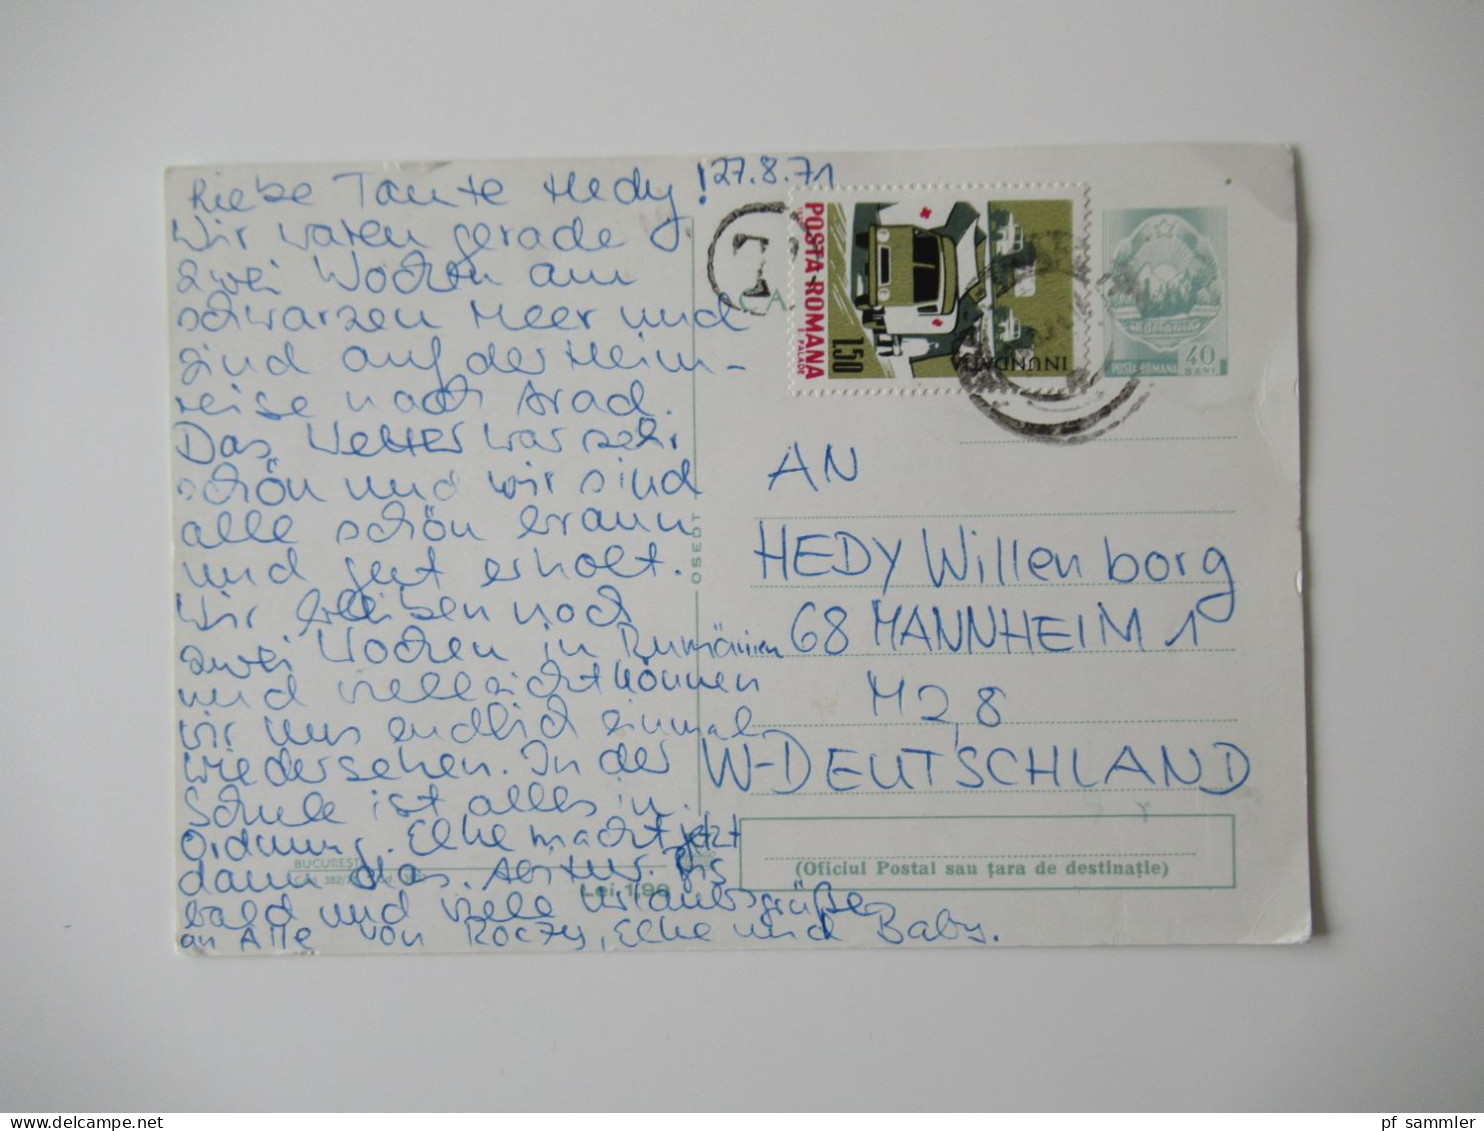 Liebe Tante Hedy! 27.8.71
Wir waren gerade
zwei Wochen am
schwarzen Meer und
sind auf der Heim-
reise nach Arad.
Das Wetter war sehr
schön und wir sind
alle schön braun
und gut erholt.
Wir bleiben noch
zwei Wochen in Rumänien
und vielleicht können
wir uns endlich einmal
wiedersehen. In der
Schule ist alles in
Ordnung. Elke macht jetzt
dann das Abitur. Bis
bald und viele Urlaubsgrüße
an Alle von Roczy, Elke und Baby.
BUCUREȘTI
Lei 1,90
OSEDT
T
CA
POSTA ROMANA
E. PALADE
1.50
INUNDATIA
ROMANIA
POSTA ROMANA
40
BANI
AN
HEDY Willenborg
68 MANNHEIM 1
M 2,8
W-DEUTSCHLAND
(Oficiul Postal sau țara de destinație)
www.delcampe.net
pf_sammler